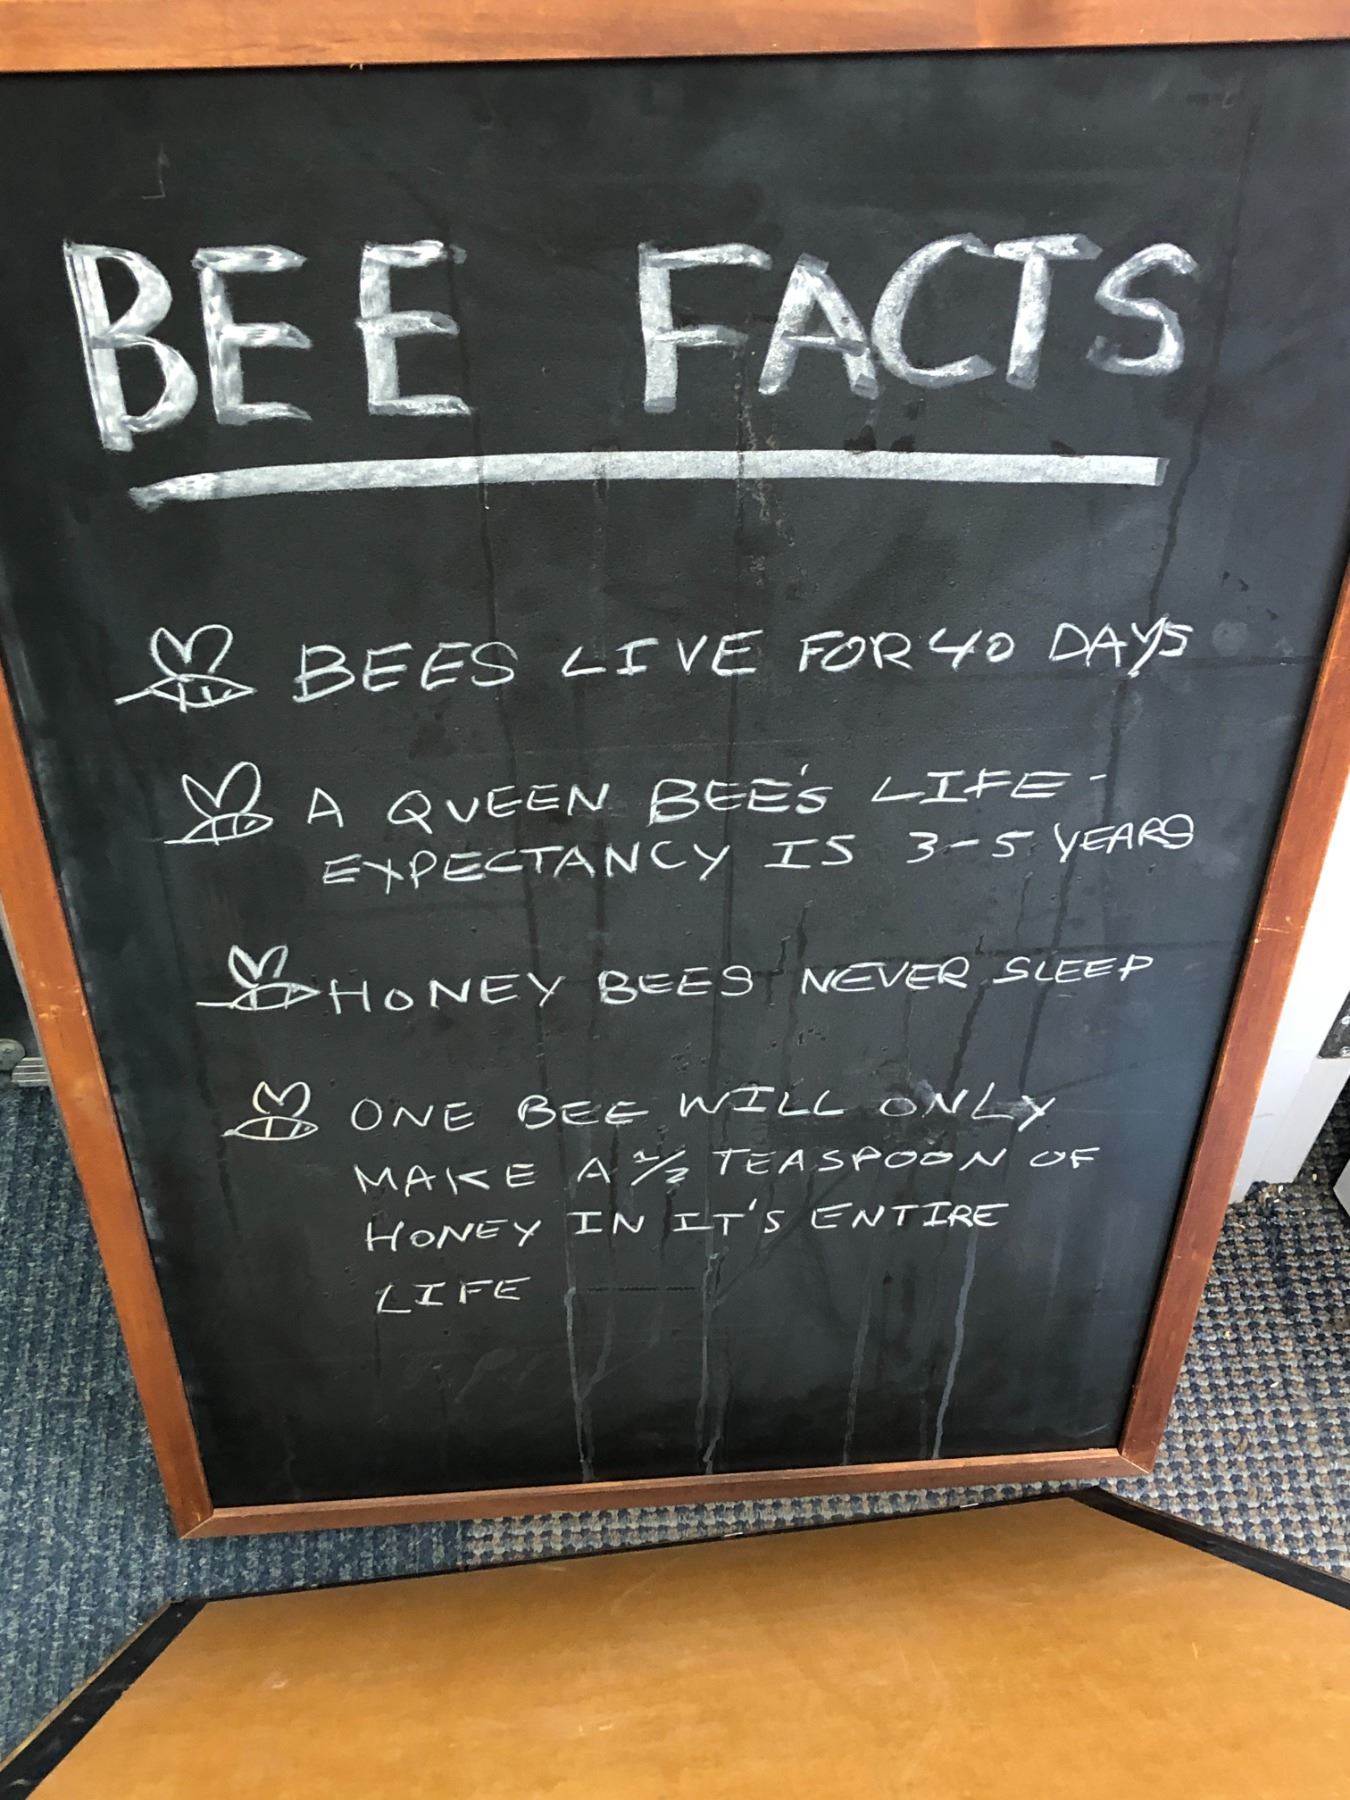 BEE FACTS
BEES LIVE FOR 40 DAYS
A QUEEN BEE'S LIFE-
EXPECTANCY IS 3-5 YEARS
HONEY BEES NEVER SLEEP
ONE BEE WILL ONLY
MAKE A 1/2 TEASPOON OF
HONEY IN IT'S ENTIRE
LIFE